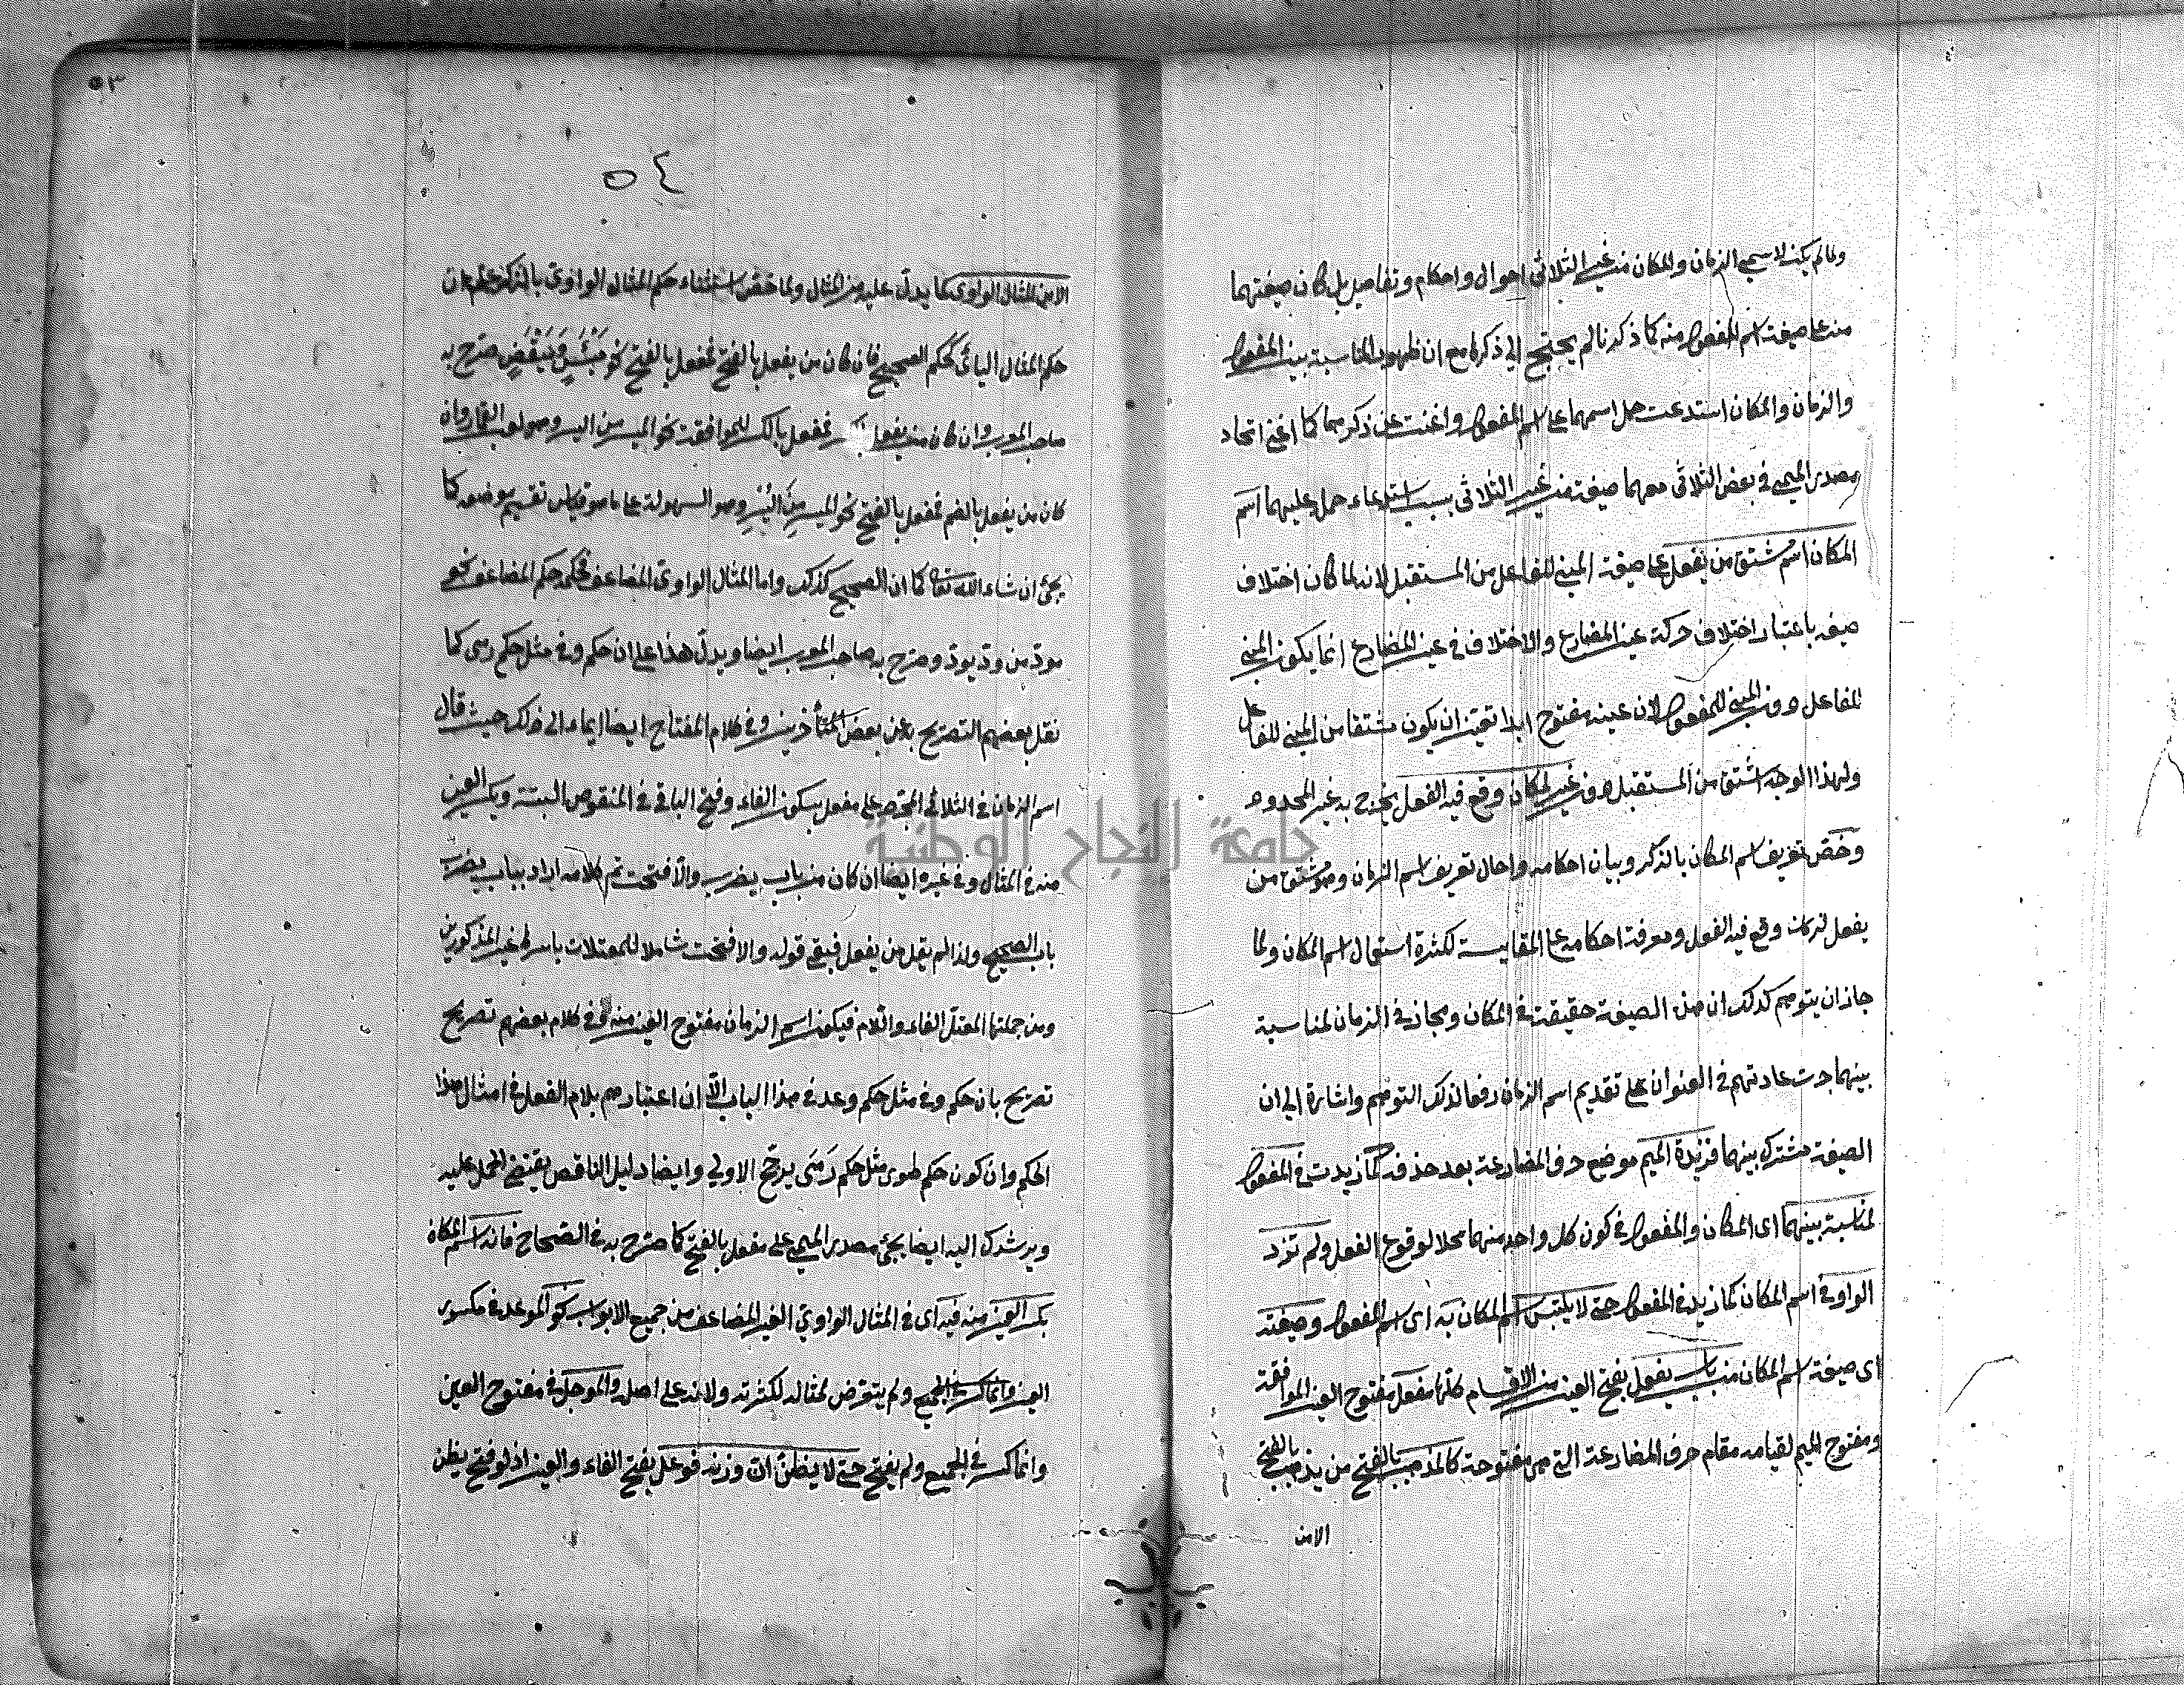 ولما لم يكن لاسمي الزمان والمكان من غير الثلاثي احوال واحكام وتفاصيل بل كان صيغتهما
منه على صيغة اسم المفعول منه كما ذكرنا لم يحتج الى ذكرها مع ان ظهور المناسبة بين المفعول
والزمان والمكان استدعت حمل اسمهما على اسم المفعول واغنت عن ذكرهما كما اغنى اتحاد
مصدر الميمي في بعض الثلاثي معهما صيغة من غير الثلاثي بسبب استدعاء حمل عليهما اسم
المكان اسم مشتق من يفعل على صيغة المبني للفاعل من المستقبل لانه لما كان اختلاف
صيغه باعتبار اختلاف حركة عين المضارع والاختلاف في عين المضارع انما يكون المبني
للفاعل دون المبني للمفعول لان عينه مفتوح ابدا تعين ان يكون مشتقا من المبني للفاعل
ولهذا الوجه اشتق من المستقبل دون غيره لمكان وقع فيه الفعل يخرج به غير المحدود
وخص تعريف اسم المكان بالذكر وبيان احكامه واحال تعريف اسم الزمان وهو مشتق من
يفعل لزمان وقع فيه الفعل ومعرفة احكامه على المقايسة لكثرة استعمال اسم المكان ولما
جاز ان يتوهم كذلك ان هذه الصيغة حقيقة في المكان ومجاز في الزمان لمناسبة
بينهما جرت عادتهم في العنوان على تقديم اسم الزمان دفعا لذلك التوهم واشارة الى ان
الصيغة مشترك بينهما فزيدة الميم موضع حرف المضارعة بعد حذفه كما زيدت في المفعول
لمناسبة بينهما اى المكان والمفعول في كون كل واحد منهما محلا لوقوع الفعل ولم تزد
الواو في اسم المكان كما زيد في المفعول حتى لا يلتبس اسم المكان به اى اسم المفعول وصيغته
اى صيغة اسم المكان من باب يفعل بفتح العين من الاقسام كلها مفعل مفتوح العين الموافقة
ومفتوح الميم لقيامه مقام حرف المضارعة التي هي مفتوحة كالمذهب بالفتح من يذهب بالفتح
الا من
٥٣
٥٤
الا من المثال الواوى كما يدل عليه من المثال ولما خص استثناء حكم المثال الواوى بالذكر علم ان
حكم المثال اليائى كحكم الصحيح فان كان من يفعل بالفتح فمفعل بالفتح نحو صرح به
صاحب المغرب وان كان من يفعل فمفعل بالكسر للموافقة نحو الميسر من اليسر وهو لعب القمار وان
كان من يفعل بالضم فمفعل بالفتح نحو الميسر من اليسر وهو السهولة على ما هو قياس تقسيم موضعه كما
يجئ ان شاء الله تعالى كما ان الصحيح كذلك واما المثال الواوى المضاعف فحكمه حكم المضاعف نحو
مود من ود يود وصرح به صاحب المغرب ايضا ويدل هذا على ان حكم وفى مثل حكم رمى كما
نقل بعضهم التصريح به عن بعض المتأخرين وفى كلام المفتاح ايضا ايماء الى ذلك حيث قال
اسم الزمان في الثلاثي المجرد على مفعل بسكون الفاء وفتح الباقي في المنقوص البتة وبكسر العين
منه في المثال وفى غيره ايضا ان كان من باب يضرب والا فتحت تم كلامه اراد بباب يضرب
باب الصحيح ولذا لم يقل من يفعل فبقي قوله والا فتحت شاملا للمعتلات باسرها غير المذكورين
ومن جملتها المعتل الفاء واللام فيكون اسم الزمان مفتوح العين منه وفى كلام بعضهم تصريح
تصريح بان حكم وفى مثل حكم وعد في هذا الباب الا ان اعتبارهم بلام الفعل في امثال هذا
الحكم وان كون حكم طوى مثل حكم رمى يرجح الاولى وايضا دليل الناقص يقتضى الحمل عليه
ويرشدك اليه ايضا يجئ مصدر الميمي على مفعل بالفتح كما صرح به في الصحاح فانه اسم المكان
بكسر العين منه فيه اى في المثال الواوى الغير المضاعف من جميع الابواب نحو الموعد في مكسور
العين وانما كسر في الجميع ولم يتعرض لمثاله لكثرته ولانه على اصل والموجل في مفتوح العين
وانما كسر في الجميع ولم يفتح حتى لا يظن ان وزنه فوعل بفتح الفاء والعين اذ لو فتح يظن
جامعة النجاح الوطنية